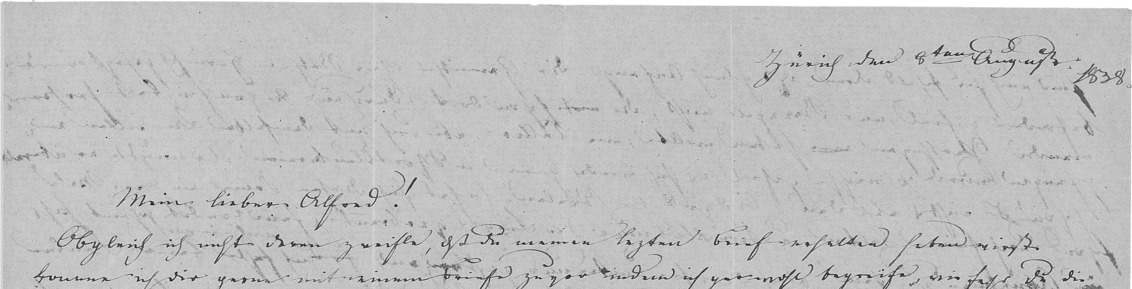 Zürich den 8ten August. 1838.
Mein lieber Alfred!
Obgleich ich nicht daran zweifle, daß du meinen lezten brief erhalten haben wirst
komme ich dir gerne mit einem briefe zuvor indem ich gar wohl begreife, wie sehr du die